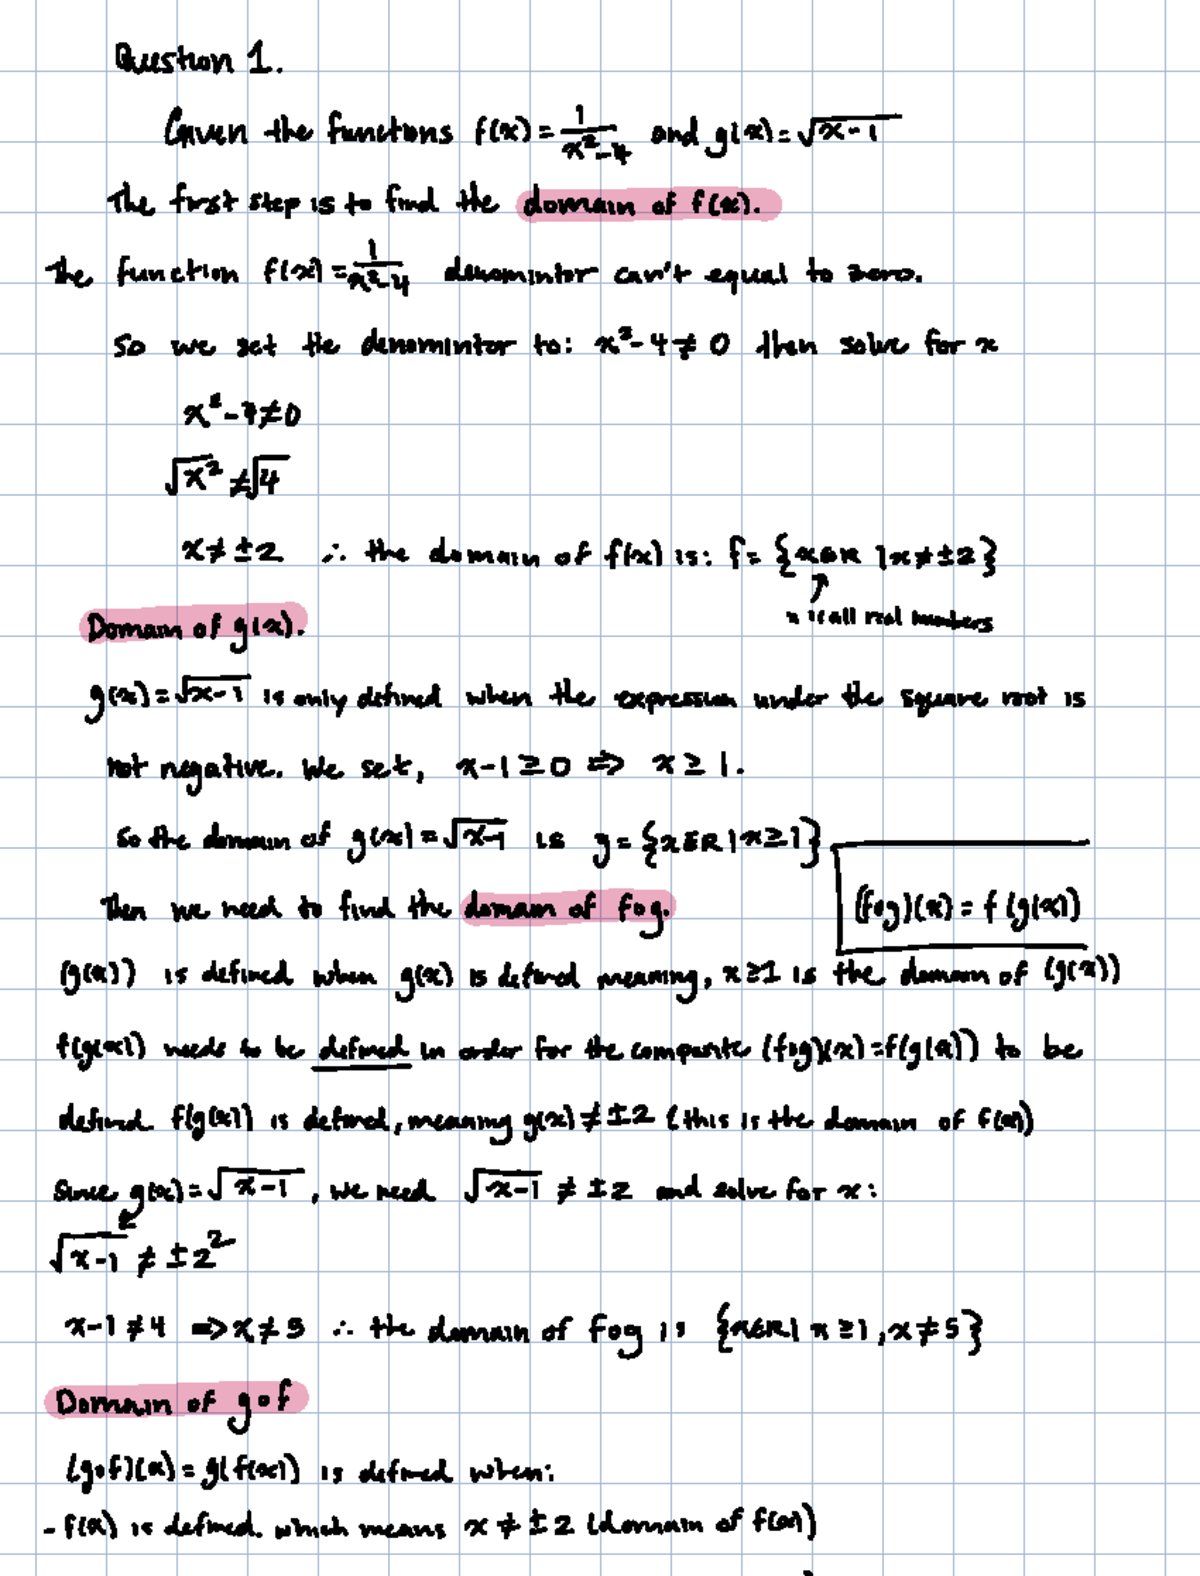 Question 1.
Given the functions f(x) = 1/(x²-4) and g(x) = √(x-1)
The first step is to find the domain of f(x).
The function f(x) = 1/(x²-4) denomintor can't equal to zero.
So we set the denomintor to: x²-4≠0 then solve for x
x²-4≠0
√x² ≠ √4
x≠ ±2 ∴ the domain of f(x) is: f= {x∈R | x≠±2}
↗
x is all real numbers
Domain of g(x).
g(x) = √(x-1) is only defined when the expression under the square root is
not negative. We set, x-1≥0 ⇒ x≥1.
So the domain of g(x) = √(x-1) is g = {x∈R | x≥1}
Then we need to find the domain of fog.
(fog)(x) = f(g(x))
(g(x)) is defined when g(x) is defined meaning, x≥1 is the domain of (g(x))
f(g(x)) needs to be defined in order for the composite (fog)(x) = f(g(x)) to be
defined. f(g(x)) is defined, meaning g(x) ≠ ±2 (this is the domain of f(x))
Since g(x) = √(x-1), we need √(x-1) ≠ ±2 and solve for x:
√(x-1)² ≠ ±2²
x-1≠4 ⇒ x≠5 ∴ the domain of fog is {x∈R | x≥1, x≠5}
Domain of gof
(gof)(x) = g(f(x)) is defined when:
- f(x) is defined. which means x ≠ ±2 (domain of f(x))